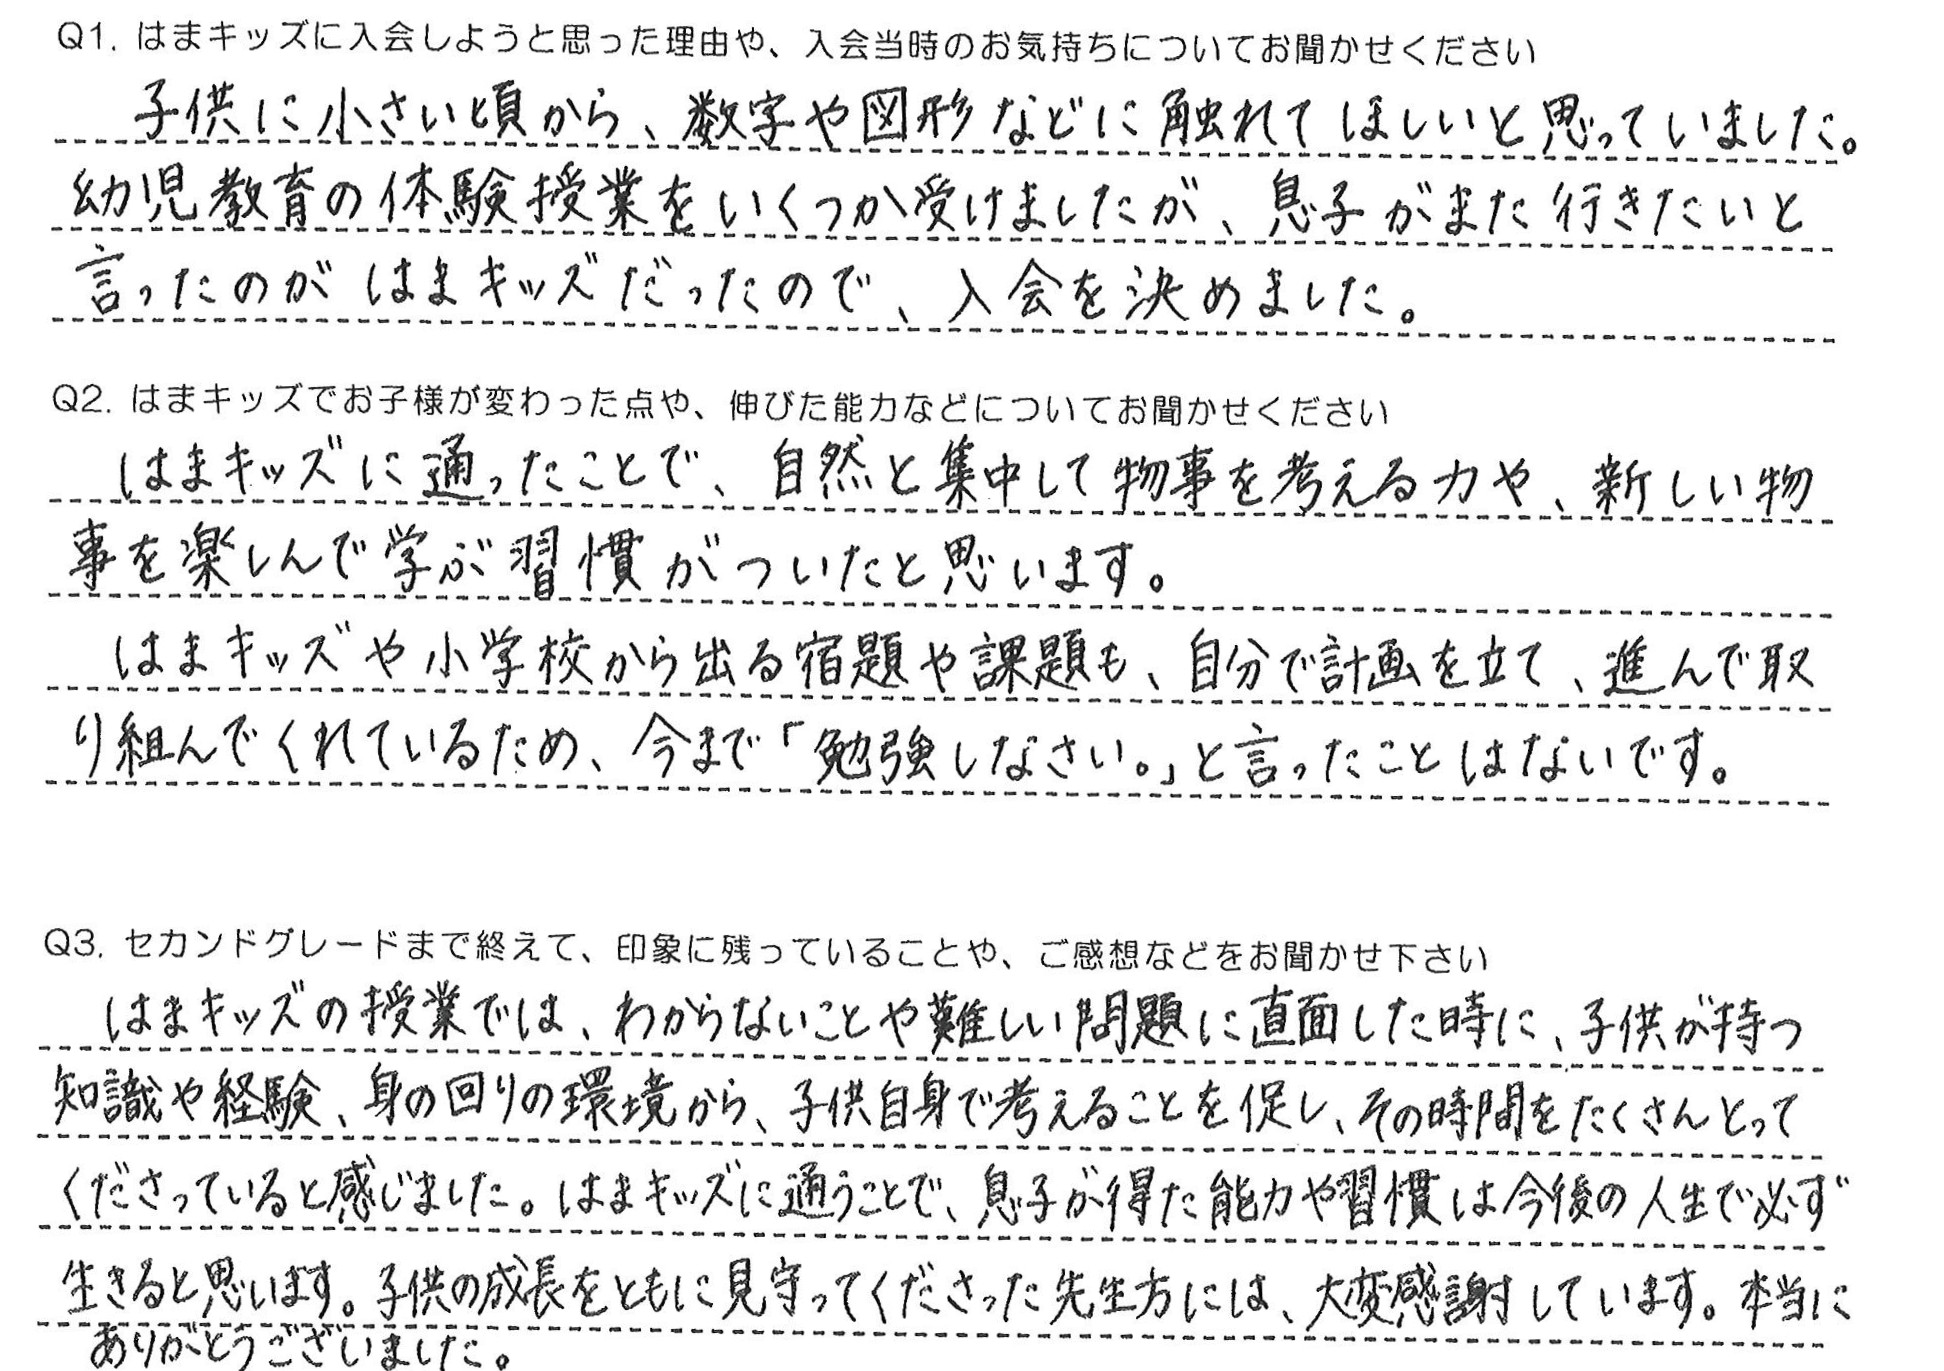 Q1. はまキッズに入会しようと思った理由や、入会当時のお気持ちについてお聞かせください
子供に小さい頃から、数字や図形などに触れてほしいと思っていました。
幼児教育の体験授業をいくつか受けましたが、息子がまた行きたいと
言ったのがはまキッズだったので、入会を決めました。
Q2. はまキッズでお子様が変わった点や、伸びた能力などについてお聞かせください
はまキッズに通ったことで、自然と集中して物事を考える力や、新しい物
事を楽しんで学ぶ習慣がついたと思います。
はまキッズや小学校から出る宿題や課題も、自分で計画を立て、進んで取
り組んでくれているため、今まで「勉強しなさい。」と言ったことはないです。
Q3. セカンドグレードまで終えて、印象に残っていることや、ご感想などをお聞かせ下さい
はまキッズの授業では、わからないことや難しい問題に直面した時に、子供が持つ
知識や経験、身の回りの環境から、子供自身で考えることを促し、その時間をたくさんとって
くださっていると感じました。はまキッズに通うことで、息子が得た能力や習慣は今後の人生で必ず
生きると思います。子供の成長をともに見守ってくださった先生方には、大変感謝しています。本当に
ありがとうございました。